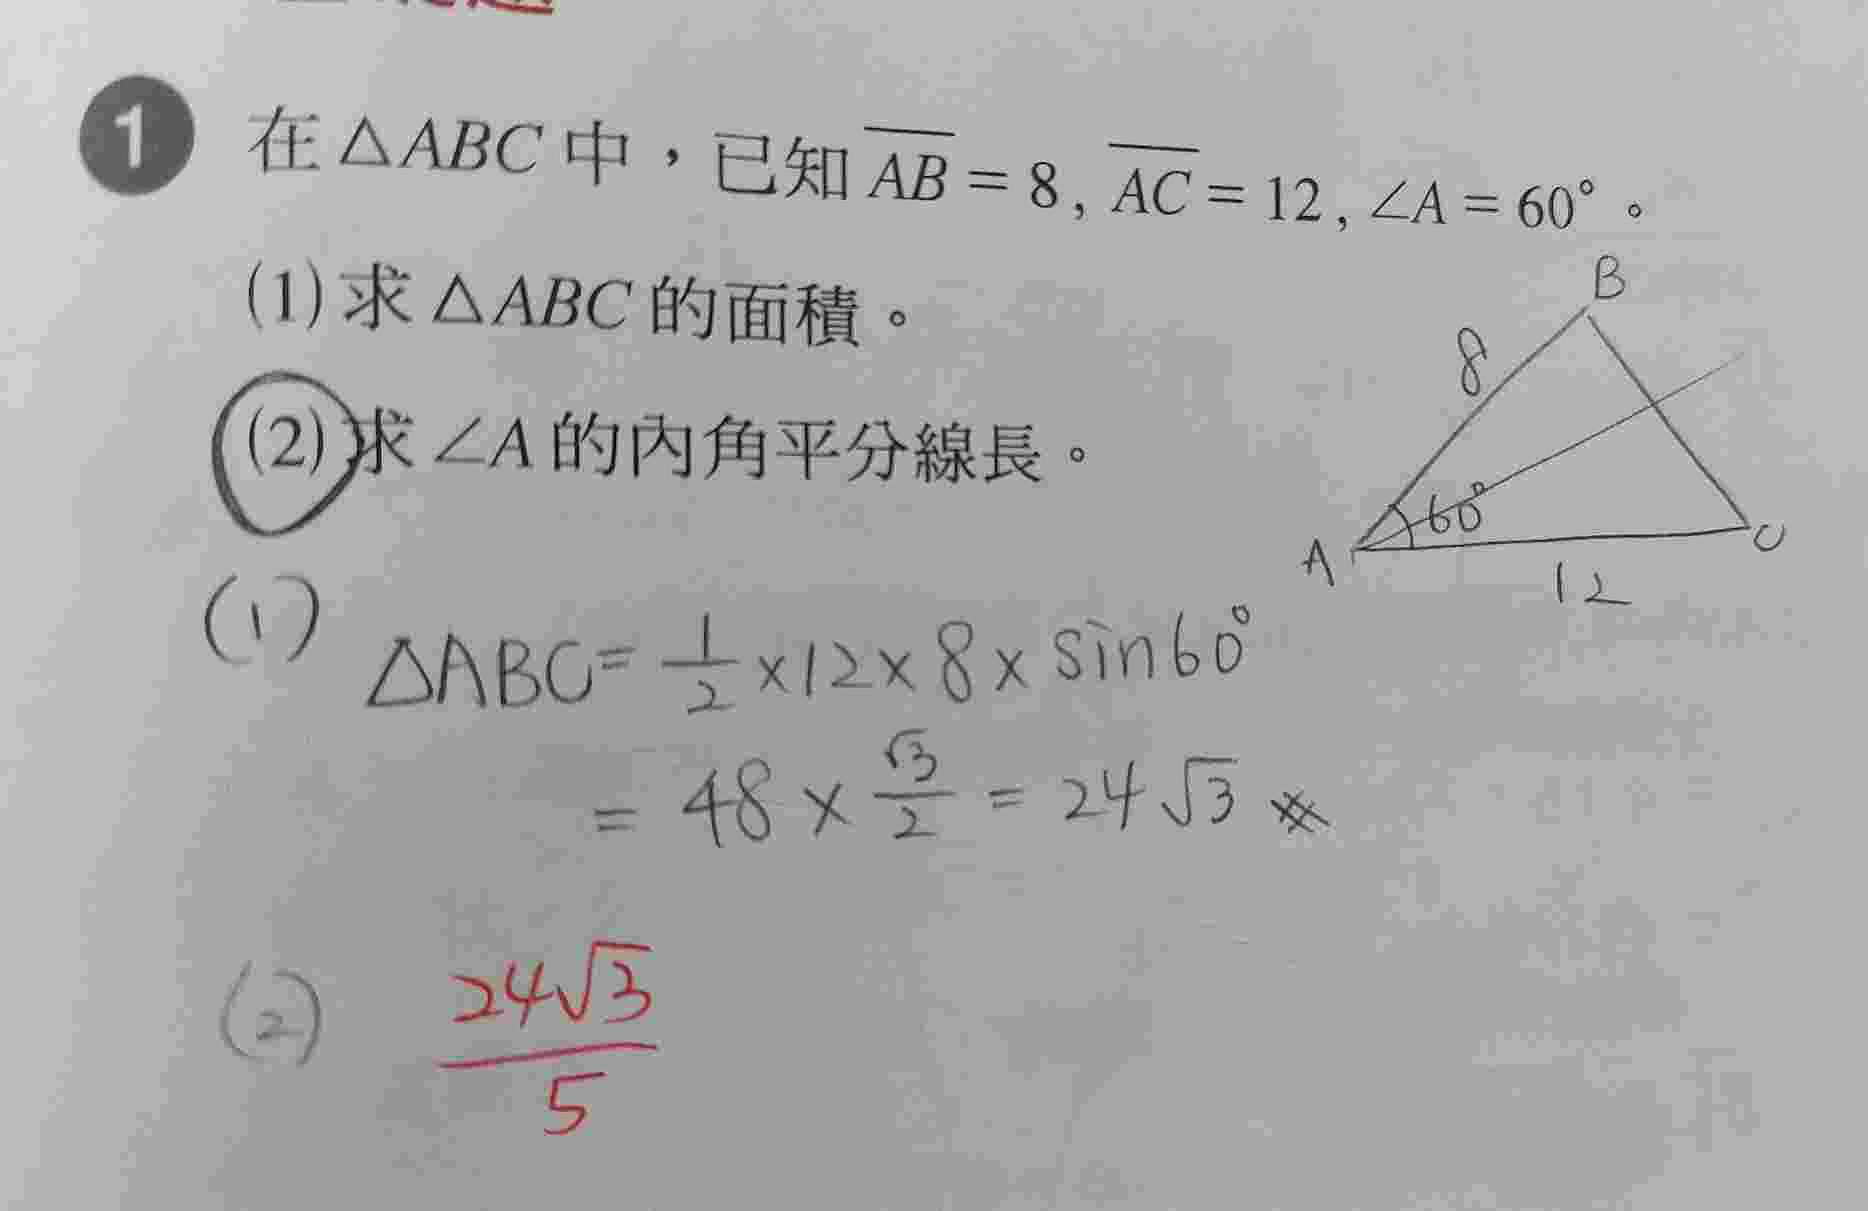 1 在△ABC中，已知 AB = 8, AC = 12, ∠A = 60°。
(1) 求△ABC的面積。
(2) 求∠A的內角平分線長。
B
8
60°
A
C
12
(1) △ABC = 1/2 × 12 × 8 × sin60°
= 48 × √3/2 = 24√3 ※
(2) 24√3/5